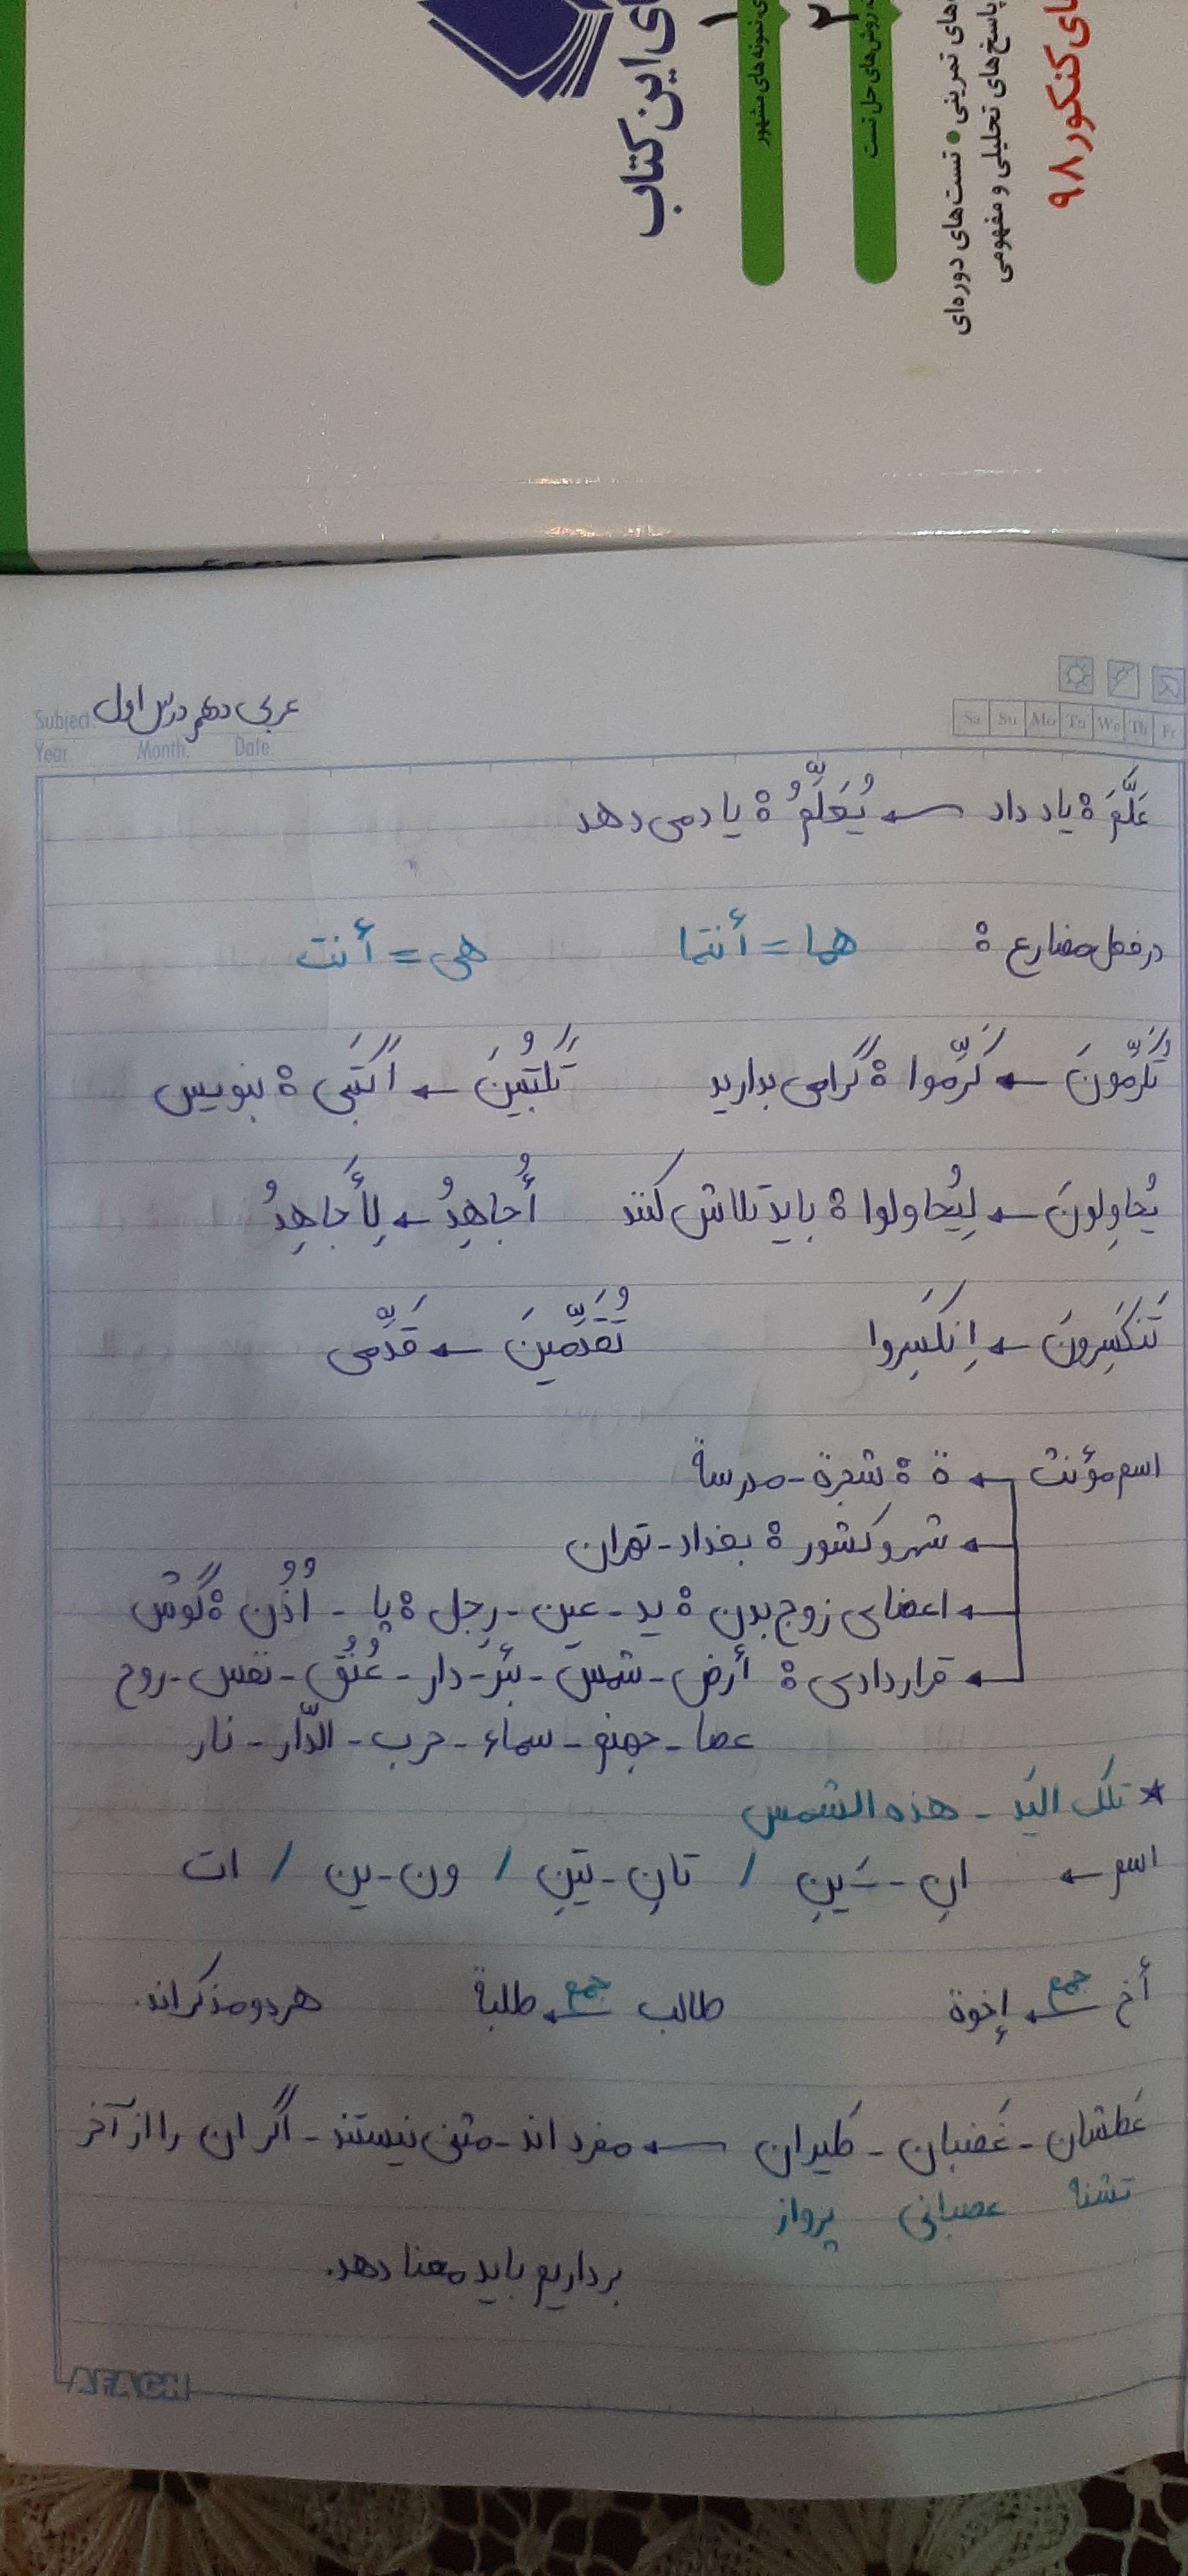 ی این کتاب
۱
ی نمونه‌های مشهور
۲
روش‌های حل تست
های تمرینی • تست‌های دوره‌ای
پاسخ‌های تحلیلی و مفهومی
های کنکور ۹۸
Subject: عربی دهم درس اول
Year. Month. Date.
Sa Su Mo Tu We Th Fr
عَلَّمَ : یاد داد ← یُعَلِّمُ : یاد می دهد
در فعل مضارع : هما = أنتما هی = أنت
تُکَرِّمونَ ← کَرِّموا : گرامی بدارید تَکتُبینَ ← اکتُبی : بنویس
یُحاوِلونَ ← لِیُحاولوا : باید تلاش کنند أُجاهِدُ ← لِأُجاهِدُ
تَنکَسِرونَ ← اِنکَسِروا تُقَدِّمینَ ← قَدِّمی
اسم مؤنث ← ة : شجرة - مدرسة
← شهر و کشور : بغداد - تهران
← اعضای زوج بدن : ید - عین - رِجل : پا - اُذُن : گوش
← قراردادی : أرض - شمس - بئر - دار - عُنُق - نفس - روح
عصا - جهنم - سماء - حرب - الدّار - نار
* تلک الیَد - هذه الشمس
اسم ← انِ - ـَینِ / تانِ - تَینِ / ون - ین / ات
أخ جمع ← إخوة طالب جمع ← طلبة هر دو مذکر اند.
عَطشان - غَضبان - طیران ← مفرد اند - مثنی نیستند - اگر ان را از آخر
تشنه عصبانی پرواز
برداریم باید معنا دهد.
AFAGH